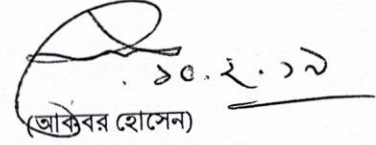 ১০.২.১৯
(আকবর হোসেন)